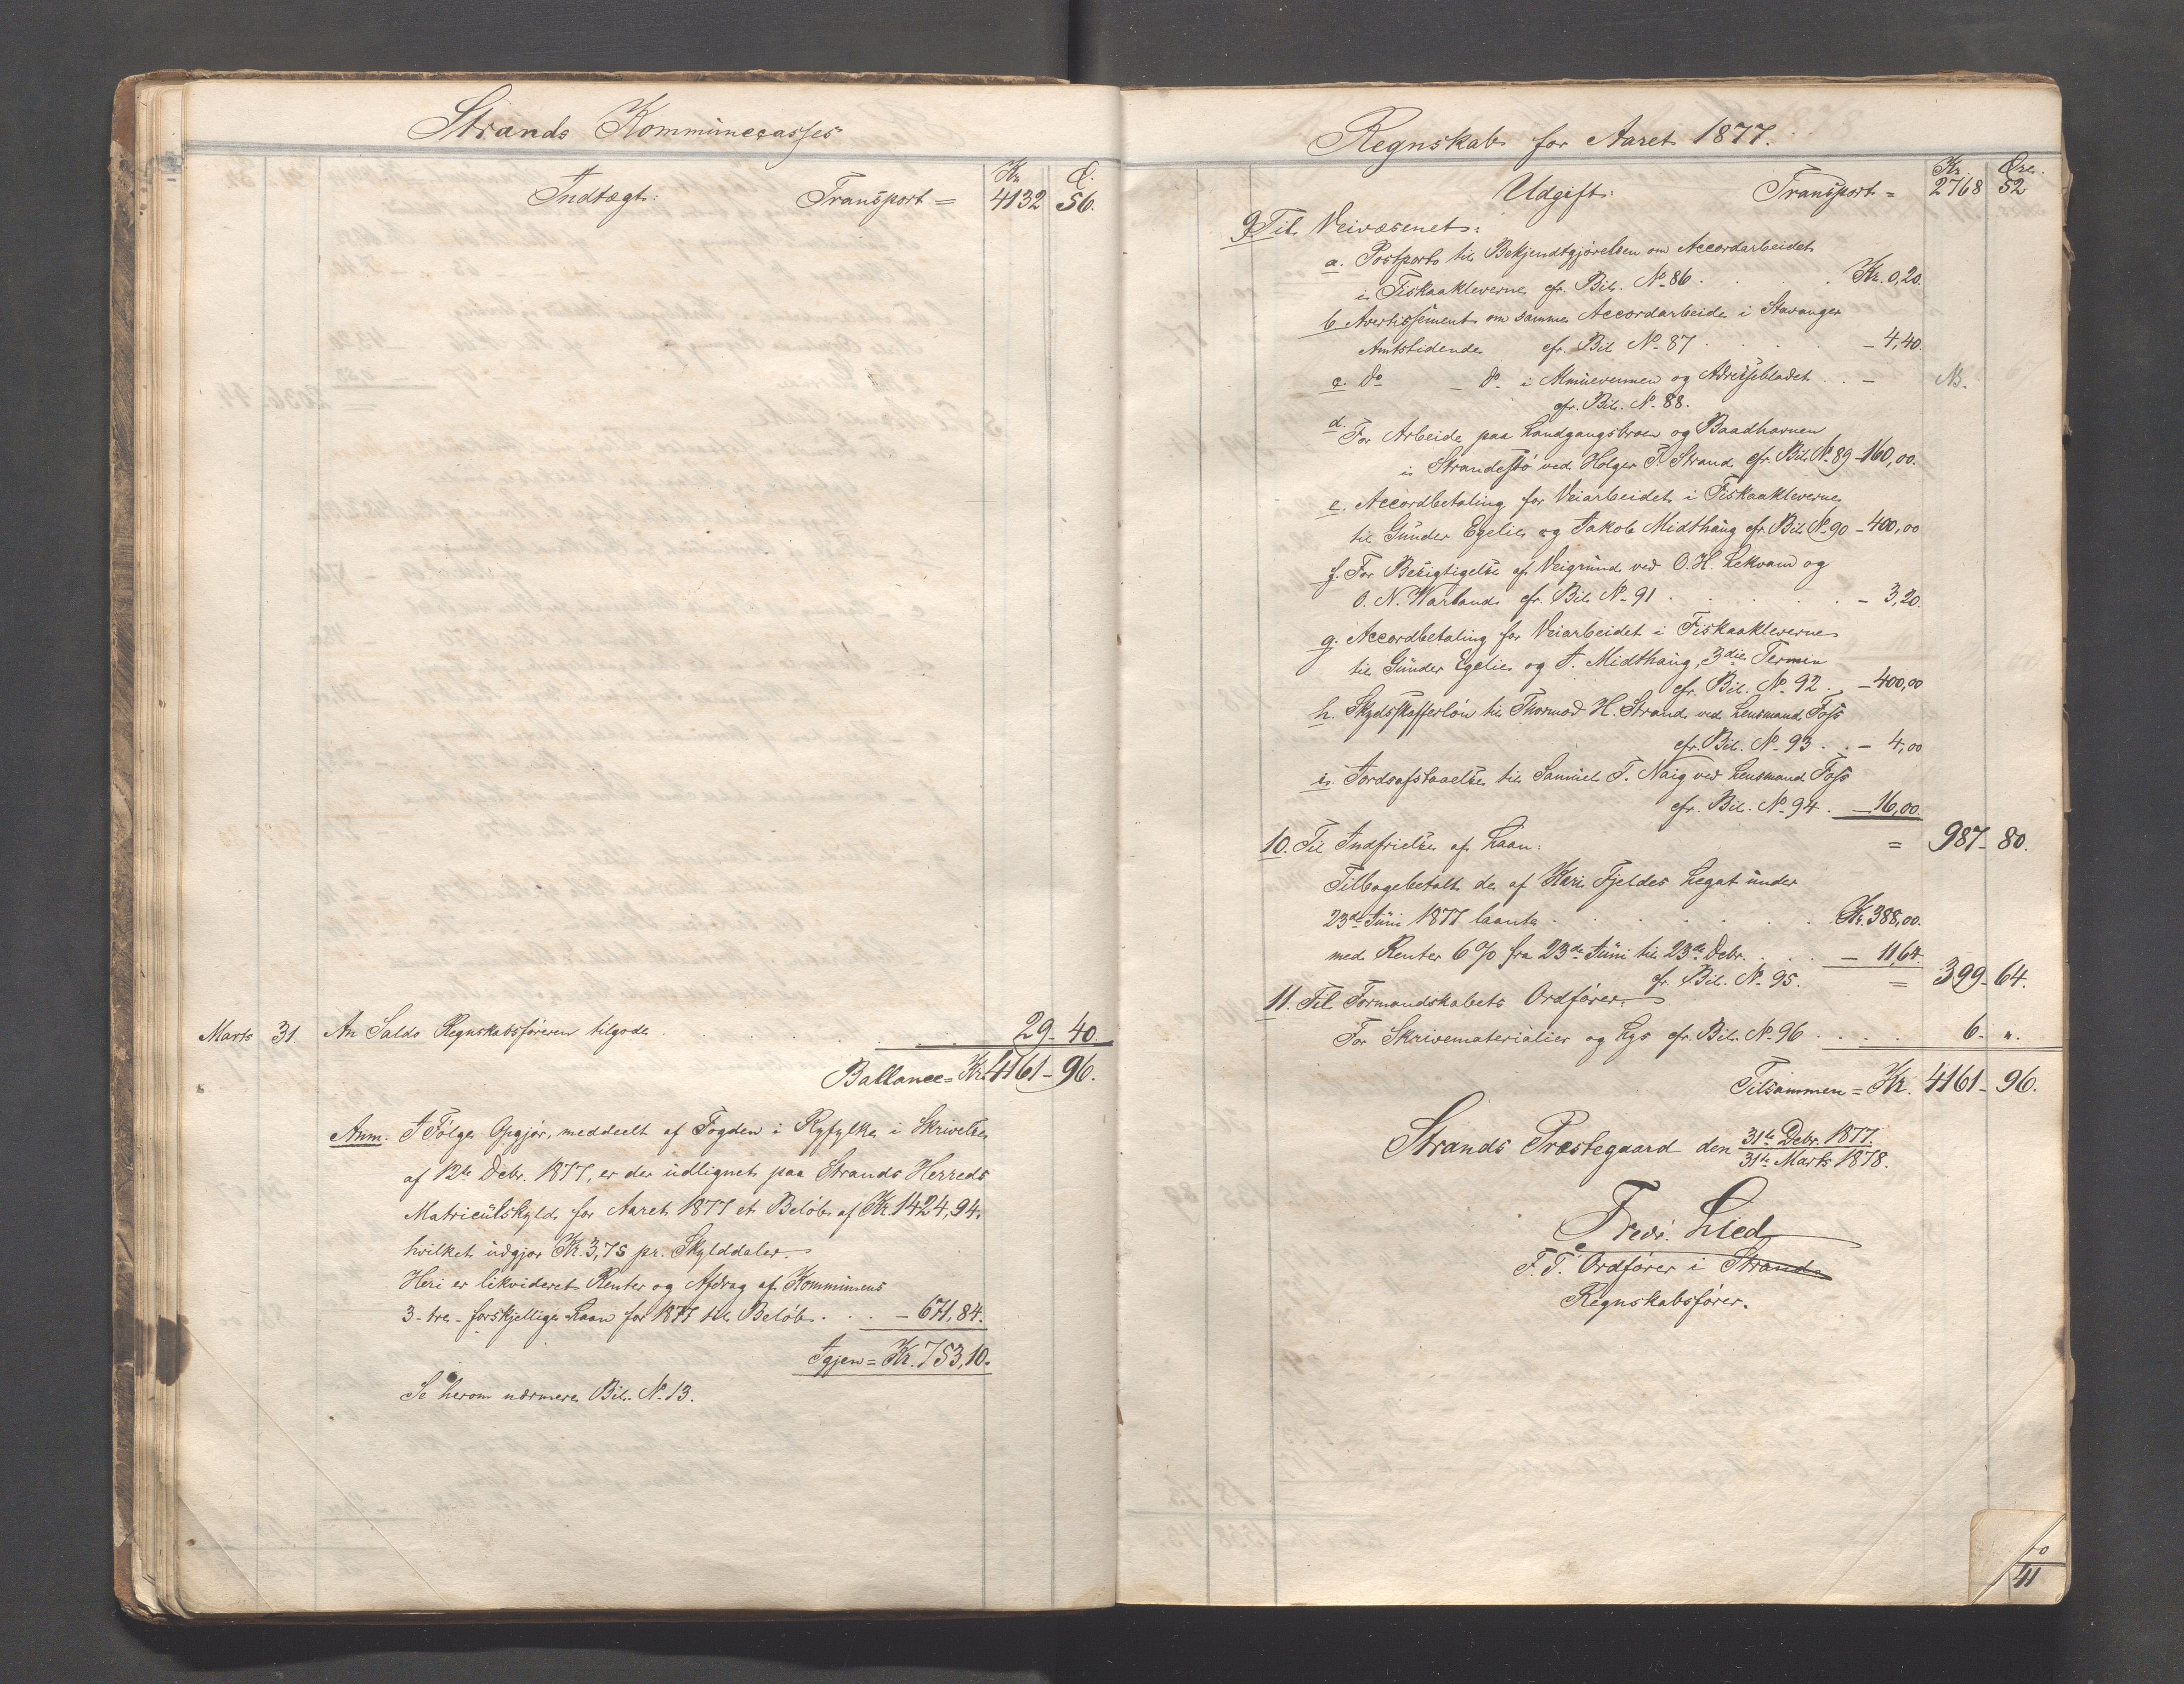 Strands Kommunecasses
Kr. Ø.
Indtægt: Transport = 4132 56.
Marts 31. An Saldo Regnskabsføreren tilgode . . . . 29 - 40.
Ballance = Kr. 4161 - 96.
Anm. I Følge Opgjør, meddeelt af Fogden i Ryfylke i Skrivelse
af 12te Debr. 1877, er der udlignet paa Strands Herreds
Matriculskyld for Aaret 1877 et Beløb af Kr. 1424,94.
hvilket udgjør Kr. 3,75 pr. Skylddaler.
Heri er likvideret Renter og Afdrag af Kommunens
3 - tre - forskjellige Laan for 1877 til Beløb . . . - 671,84.
Igjen = Kr. 753,10.
Se herom nærmere Bil. No. 13.
Regnskab for Aaret 1877.
Kr. Øre.
Udgift: Transport = 2768 52
9. Til Veivæsenet:
a. Postporto til Bekjendtgjørelsen om Accordarbeidet
i Fiskaakleverne cfr. Bil. No. 86 . . . . Kr. 0,20.
b. Avertissement om samme Accordarbeide i Stavanger
Amtstidende cfr. Bil. No. 87 . . . . - 4,40.
c. do - do i Almuevennen og Adressebladet . . - NB.
cfr. Bil. No. 88.
d. For Arbeide paa Landgangsbroen og Baadhavnen
i Strandestø ved Holger T. Strand cfr. Bil. No. 89 - 160,00.
e. Accordbetaling for Veiarbeidet i Fiskaakleverne
til Gunder Egelie og Jakob Midthaug cfr. Bil. No. 90 - 400,00
f. For Besigtigelse af Veigrund ved O. H. Lekvam og
O. N. Warland cfr. Bil. No. 91 . . . . - 3,20.
g. Accordbetaling for Veiarbeidet i Fiskaakleverne
til Gunder Egelie og J. Midthaug, 3die Termin
cfr. Bil. No. 92 . . - 400,00
h. Skydsskafferløn til Thormod H. Strand ved Lensmand Foss
cfr. Bil. No. 93 . . - 4,00
i. Jordsafstaaelse til Samuel T. Naig ved Lensmand Foss
cfr. Bil. No. 94 . - 16,00.
= 987 - 80.
10. Til Indfrielse af Laan:
Tilbagebetalt de af Kari Fjeldes Legat under
23de Juni 1877 laante . . . . Kr. 388,00.
med Renter 6 % fra 23de Juni til 23de Debr. . . . - 11,64.
cfr. Bil. No. 95. = 399 - 64.
11. Til Formandskabets Ordfører.
For Skrivematerialier og Lys cfr. Bil. No. 96 . . . . 6 - ".
Tilsammen = Kr. 4161 - 96.
Strands Præstegaard den 31te Debr. 1877.
31te Marts 1878.
Fredr. Lied
F. T. Ordfører i Strand
Regnskabsfører.
40
41